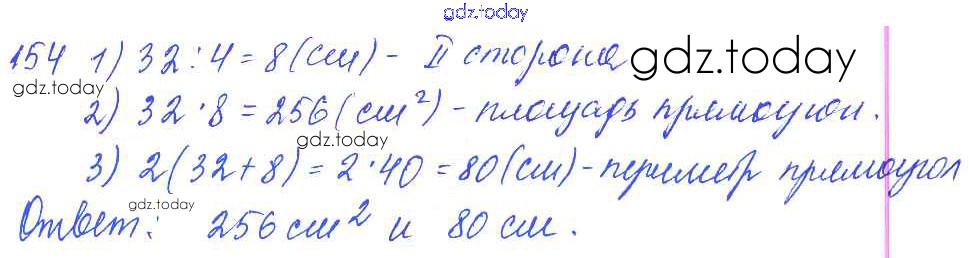 gdz.today
154 1) 32 : 4 = 8 (см) - II сторона gdz.today
gdz.today
2) 32 · 8 = 256 (см²) - площадь прямоугол.
gdz.today
3) 2(32 + 8) = 2 · 40 = 80 (см) - периметр прямоугол
gdz.today
Ответ: 256 см² и 80 см.